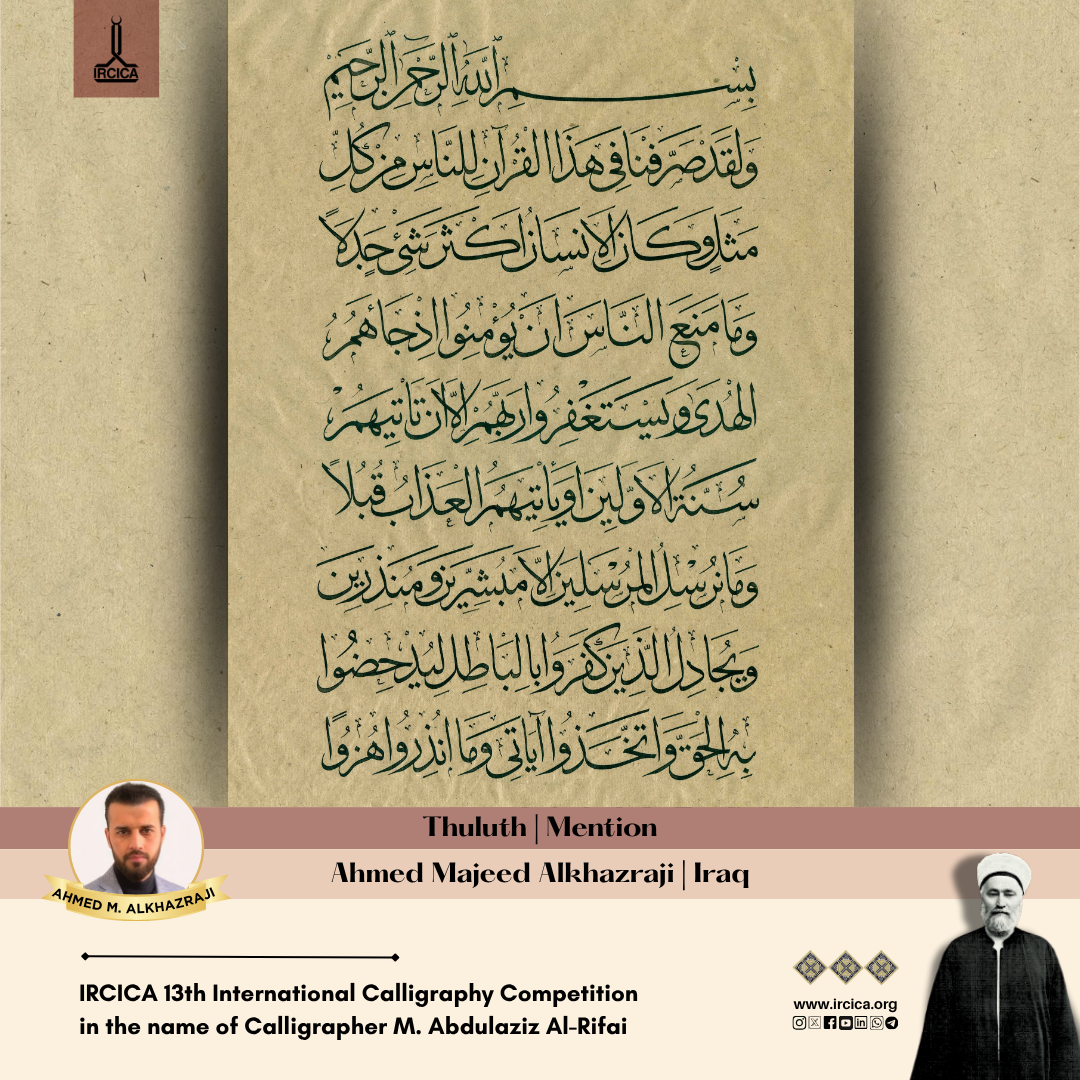 IRCICA
بسم الله الرحمن الرحيم
ولقد صرفنا في هذا القرآن للناس من كل
مثل وكان الانسان اكثر شئ جدلا
وما منع الناس ان يؤمنوا اذ جاءهم
الهدى ويستغفروا ربهم الا ان تأتيهم
سنة الاولين او يأتيهم العذاب قبلا
وما نرسل المرسلين الا مبشرين ومنذرين
ويجادل الذين كفروا بالباطل ليدحضوا
به الحق واتخذوا آياتي وما انذروا هزوا
Thuluth | Mention
Ahmed Majeed Alkhazraji | Iraq
AHMED M. ALKHAZRAJI
IRCICA 13th International Calligraphy Competition
in the name of Calligrapher M. Abdulaziz Al-Rifai
www.ircica.org